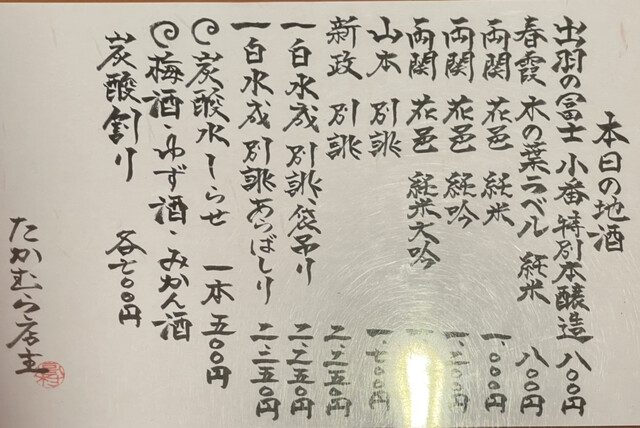 本日の地酒
出羽の冨士 小番 特別本醸造 八〇〇円
春霞 木の葉ラベル 純米 八〇〇円
両関 花邑 純米 一、〇〇〇円
両関 花邑 純吟 一、二〇〇円
両関 花邑 純米大吟
山本 別誂 一、七〇〇円
新政 別誂 二、二五〇円
一白水成 別誂、袋吊り 二、二五〇円
一白水成 別誂あらばしり 二、二五〇円
炭酸水しらせ 一本 五〇〇円
梅酒・ゆず酒・みかん酒
炭酸割り 各七〇〇円
たかむら店主